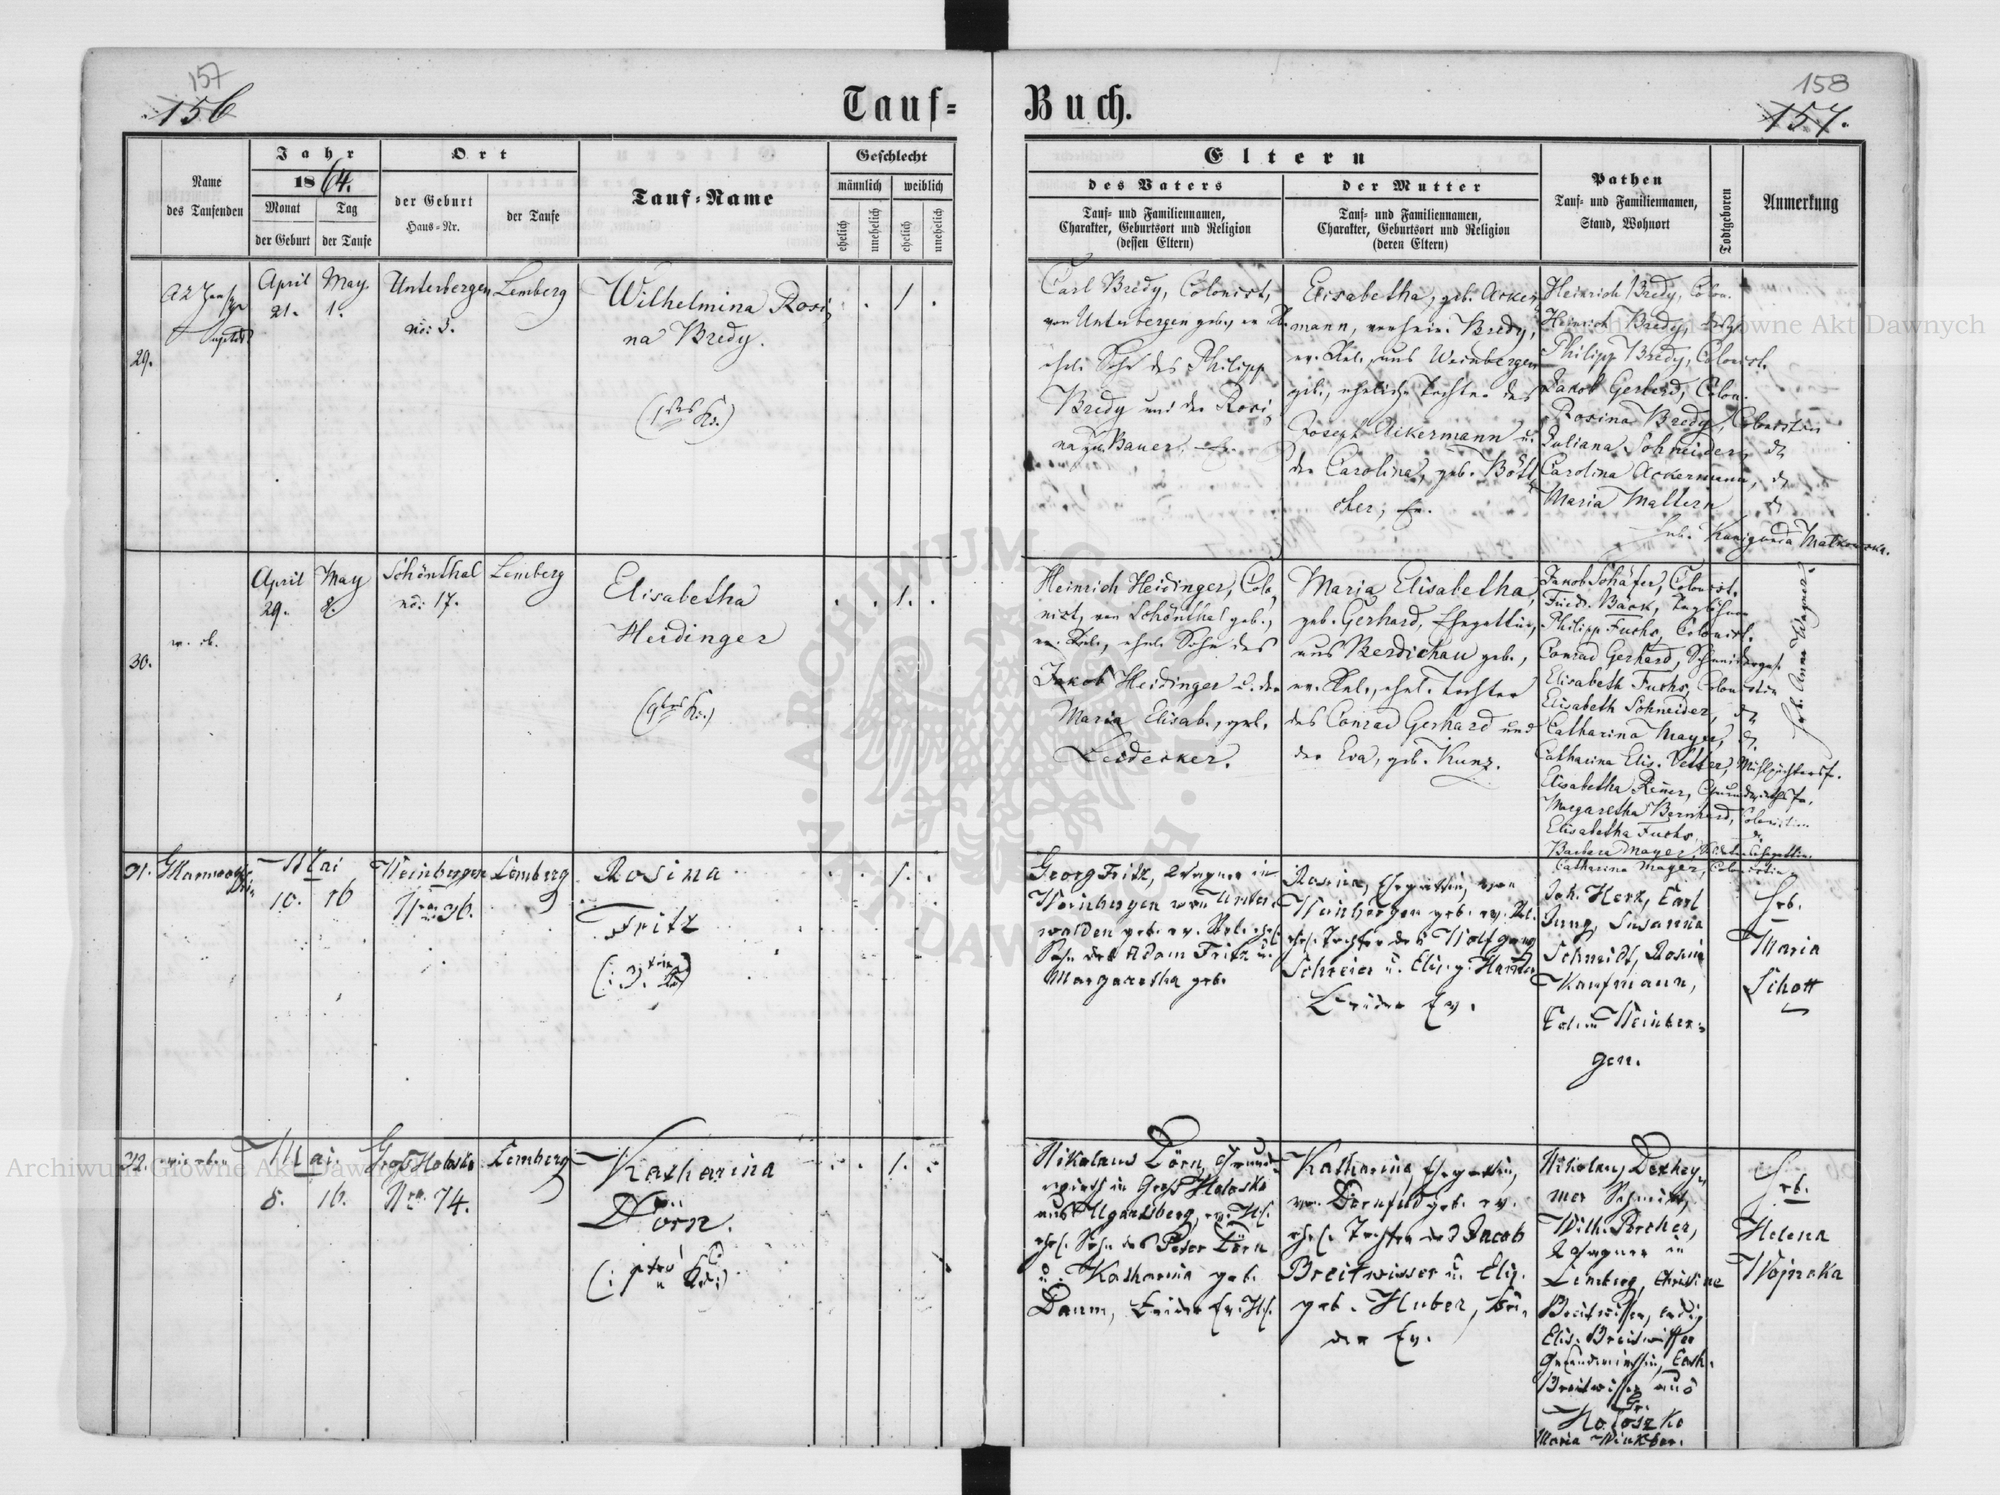 157
156
Tauf-
Name
des Taufenden
Jahr
1864.
Monat
Tag
der Geburt
der Taufe
Ort
der Geburt
Haus-Nr.
der Taufe
Tauf-Name
Geschlecht
männlich
weiblich
ehelich
unehelich
ehelich
unehelich
29.
April
21.
May
1.
Unterbergen
no: 3.
Lemberg
Wilhelmina Rosi,
na Bredy.
1
30.
w. ob.
April
29.
May
8.
Schönthal
no: 17.
Lemberg
Elisabetha
Heidinger
1.
31.
Mai
10. 16
Weinbergen
Nro 36.
Lemberg
Rosina
Fritz
1.
32. wie oben
Mai.
8. 16.
Groß Holosko
Nro. 74.
Lemberg
Katharina
Dörn.
1.
158
157.
Buch.
Eltern
des Vaters
Tauf- und Familiennamen,
Charakter, Geburtsort und Religion
(dessen Eltern)
der Mutter
Tauf- und Familiennamen,
Charakter, Geburtsort und Religion
(deren Eltern)
Pathen
Tauf- und Familiennamen,
Stand, Wohnort
Todtgeboren
Anmerkung
Carl Bredy, Colonist,
von Unterbergen geb., ev.
ehel. Sohn des Philipp
Bredy und der Rosi,
na geb. Bauer,
Elisabetha, geb. Acker,
mann, Bredy,
ev. Rel., aus Weinbergen
geb., eheliche Tochter des
Joseph Ackermann u.
der Carolina, geb. Bött,
cher, ev.
Heinrich Bredy, Colon.
Heinrich Bredy,
Philipp Bredy, Colonist.
Jakob Gerhard, Colon.
Rosina Bredy, Colonistin
Juliana Schneider,
Carolina Ackermann,
Maria Mattern
Heb. Kunigunda Malkowska.
Heinrich Heidinger, Colo,
nist, von Schönthal geb.,
ev. Rel., ehel. Sohn des
Jakob Heidinger u. der
Maria Elisab., geb.
Leidecker.
Maria Elisabetha,
geb. Gerhard, Ehegattin,
aus Berdichau geb.,
ev. Rel., ehel. Tochter
des Conrad Gerhard und
der Eva, geb. Kunz.
Jakob Schäfer, Colonist.
Friedr. Back, Taglöhner
Philipp Fuchs, Colonist.
Conrad Gerhard,
Elisabeth Fuchs, Colonistin
Elisabeth Schneider,
Catharina Mayer,
Catharina Elis. Vetter,
Elisabetha
Margaretha Bernhard, Colonistin
Elisabetha Fuchs,
Barbara Mayer,
Catharina Mayer, Colonistin
Heb. Anna Wagner.
Georg Fritz, Wagner in
Weinbergen von Unter-
walden geb. ev. Rel. ehel.
Sohn des Adam Fritz u.
Margaretha geb.
Rosina, Ehegattin, von
Weinbergen geb. ev. Rel.
ehel. Tochter des Wolfgang
Schreier u. Elis. g.
beider Ev.
Joh. Herz, Carl
Jung, Susanna
Schmidt, Rosina
Kaufmann,
Weinber-
gen.
Heb.
Maria
Schott
Nikolaus Dörn, Grund-
wirth in Groß Holosko
aus Ugartsberg, ev. H.C.
ehel. Sohn des Peter Dörn
u. Katharina geb.
Daum, beider Ev. H.C.
Katharina, Ehegattin,
von Dornfeld geb. ev.
ehel. Tochter des Jacob
Breitwieser u. Elis.
geb. Huber, bei-
der Ev.
Nikolaus
Schmidt,
Wilh. Porcher,
Wagner in
Lemberg, Christine
Breitwisser, ledig
Elis. Breitwisser
Grundwirthin, Cath.
Breitwisser aus
Gr.
Holoszko
Maria Winkler.
Heb.
Helena
Wojnska
Archiwum Główne Akt Dawnych
Archiwum Główne Akt Dawnych
ARCHIWUM GŁÓWNE AKT DAWNYCH